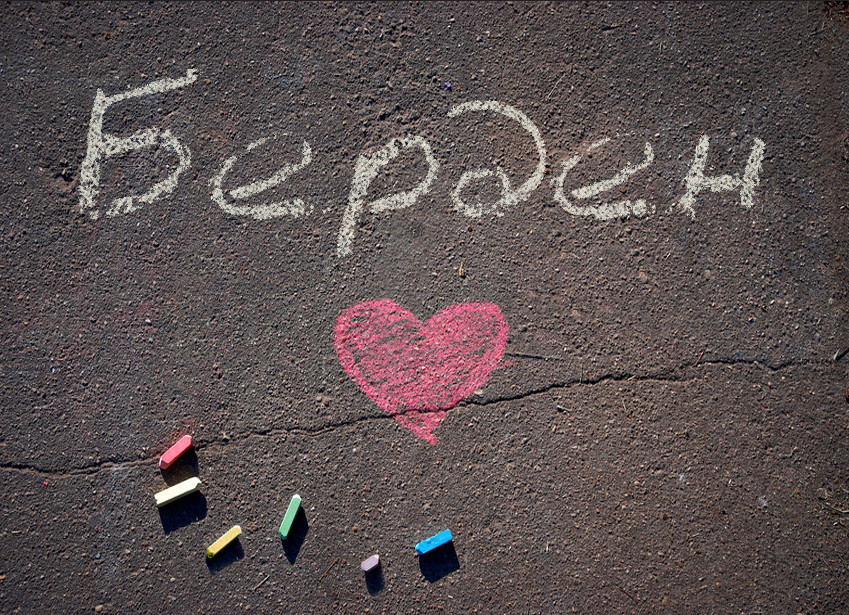 Берден